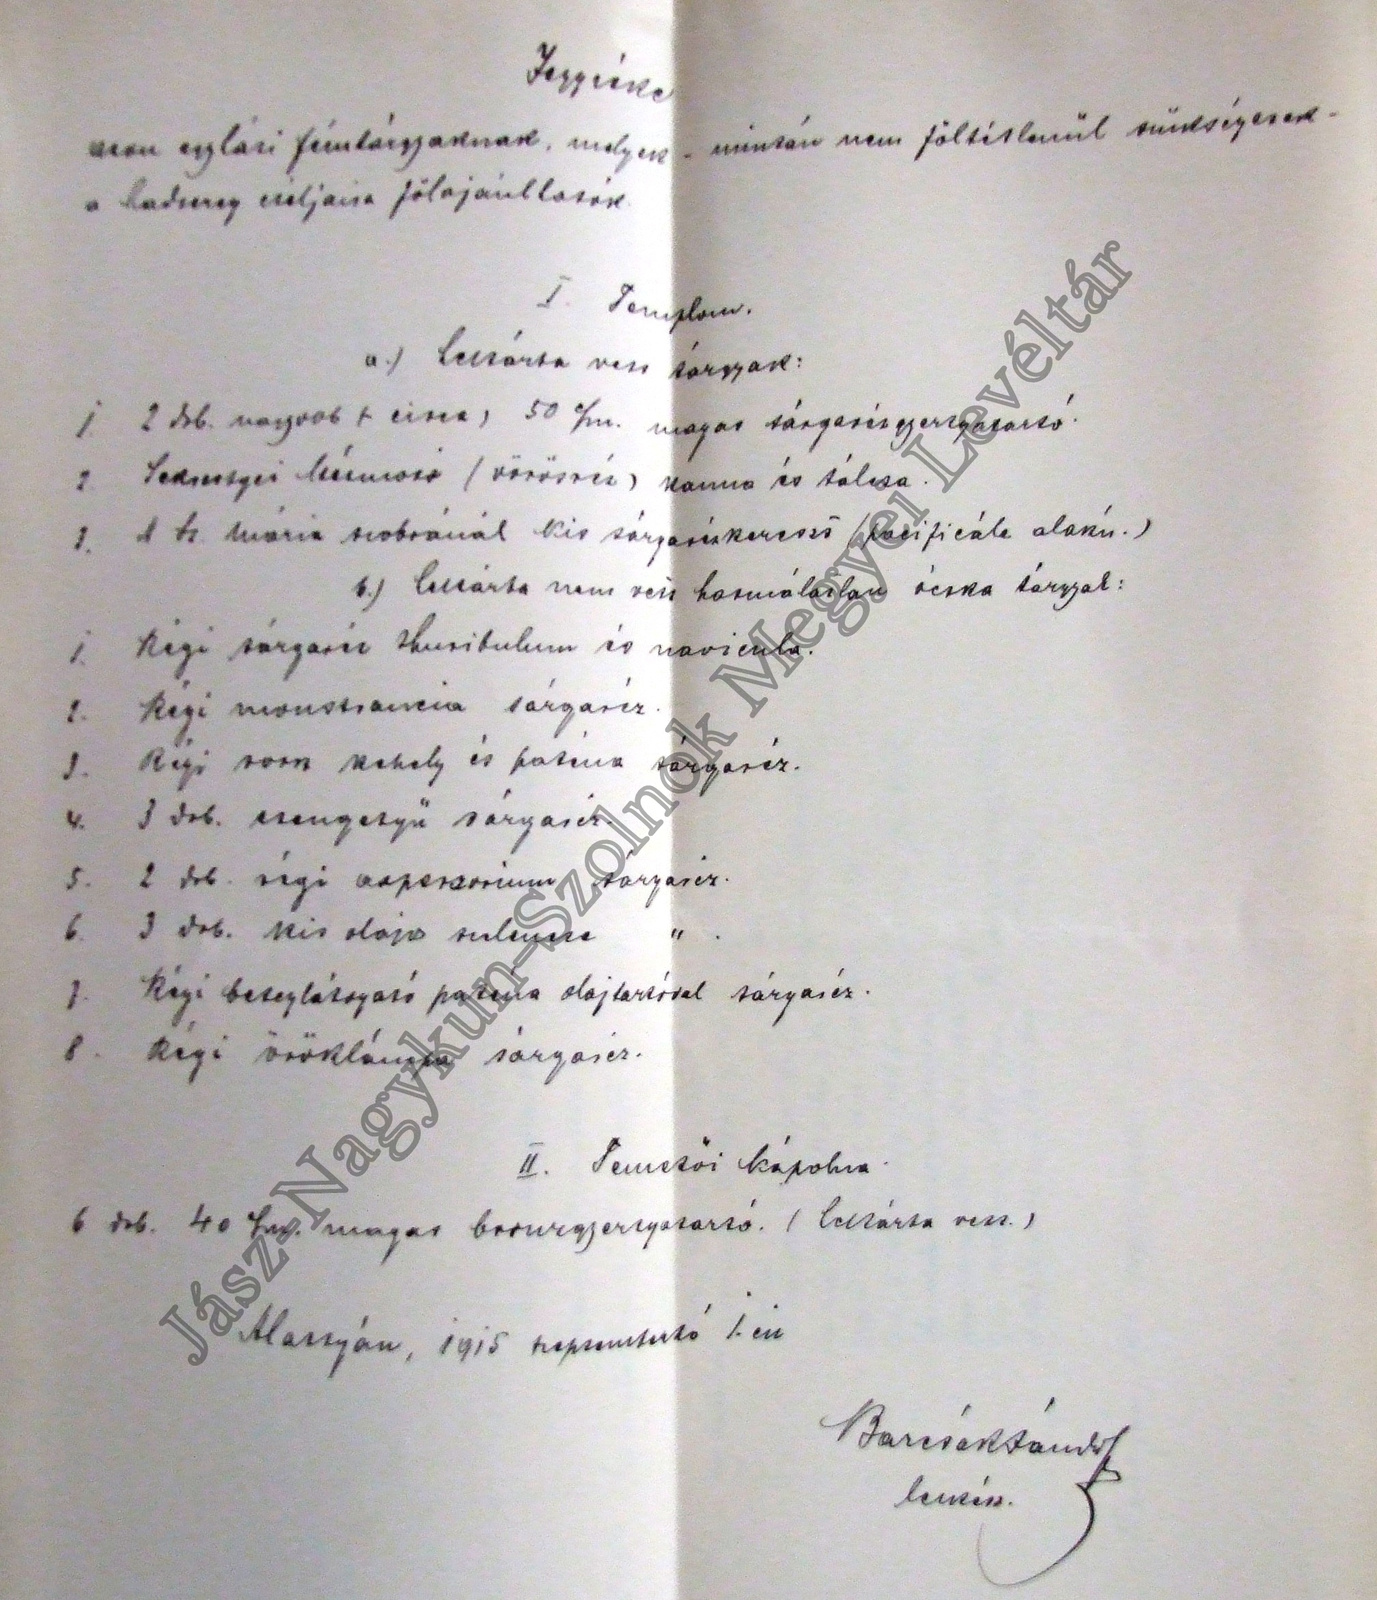 Jegyzéke
azon egyházi fémtárgyaknak, melyek - miután nem föltétlenül szükségesek -
a hadsereg céljaira fölajánlhatók.
I. Templom.
a.) Leltárba vett tárgyak:
1. 2 drb. nagyobb (circa) 50 c/m. magas sárgaréz gyertyatartó.
2. Keresztelési (vörösréz) kanna és tálca.
3. A sz. Mária szobránál kis sárgarézkereszt (pacificále alakú.)
b.) Leltárba nem vett használatlan ócska tárgyak:
1. Régi sárgaréz thuribulum és navicula.
2. Régi monstrancia sárgaréz.
3. Régi rossz kehely és paténa sárgaréz.
4. 3 drb. csengetyű sárgaréz.
5. 2 drb. régi aspersorium sárgaréz.
6. 3 drb. kis olajos szelence " .
7. Régi beteglátogató paténa olajtartóval sárgaréz.
8. Régi öröklámpa sárgaréz.
II. Temetői kápolna.
6 drb. 40 c/m. magas bronzgyertyatartó. (Leltárba vett.)
Alattyán, 1915 szeptember hó 1.-én
Barcsák Sándor
lelkész.
Jász-Nagykun-Szolnok Megyei Levéltár